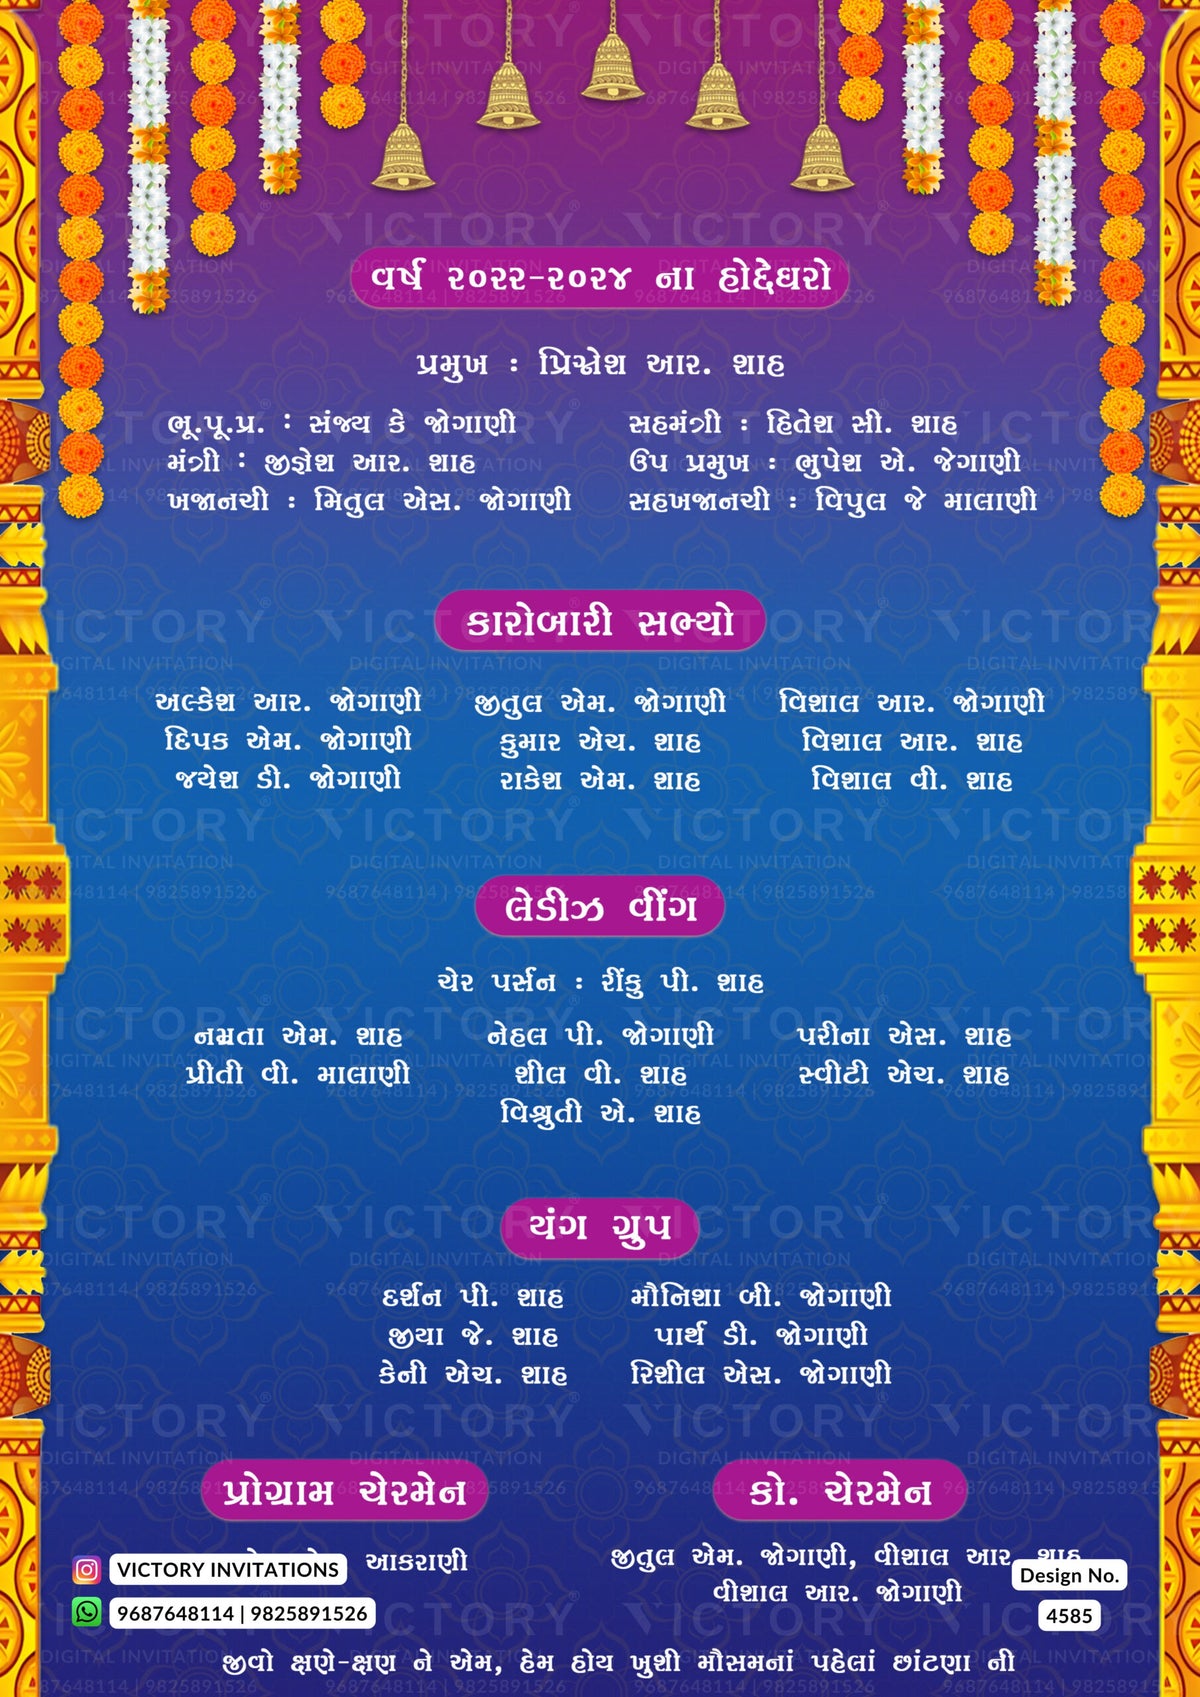 વર્ષ ૨૦૨૨-૨૦૨૪ ના હોદ્દેધરો
પ્રમુખ : પ્રિસ્નેશ આર. શાહ
ભૂ.પૂ.પ્ર. : સંજ્ય કે જોગાણી
સહમંત્રી : હિતેશ સી. શાહ
મંત્રી : જીજ્ઞેશ આર. શાહ
ઉપ પ્રમુખ : ભુપેશ એ. જેગાણી
ખજાનચી : મિતુલ એસ. જોગાણી
સહખજાનચી : વિપુલ જે માલાણી
કારોબારી સભ્યો
અલ્કેશ આર. જોગાણી જીતુલ એમ. જોગાણી વિશાલ આર. જોગાણી
દિપક એમ. જોગાણી કુમાર એચ. શાહ વિશાલ આર. શાહ
જયેશ ડી. જોગાણી રાકેશ એમ. શાહ વિશાલ વી. શાહ
લેડીઝ વીંગ
ચેર પર્સન : રીંકુ પી. શાહ
નમ્રતા એમ. શાહ નેહલ પી. જોગાણી પરીના એસ. શાહ
પ્રીતી વી. માલાણી શીલ વી. શાહ સ્વીટી એચ. શાહ
વિશ્રુતી એ. શાહ
યંગ ગ્રુપ
દર્શન પી. શાહ મૌનિશા બી. જોગાણી
જીયા જે. શાહ પાર્થ ડી. જોગાણી
કેની એચ. શાહ રિશીલ એસ. જોગાણી
પ્રોગ્રામ ચેરમેન
કો. ચેરમેન
આકરાણી
જીતુલ એમ. જોગાણી, વીશાલ આર. શાહ
વીશાલ આર. જોગાણી
VICTORY INVITATIONS
9687648114 | 9825891526
Design No.
4585
જીવો ક્ષણે-ક્ષણ ને એમ, હેમ હોય ખુશી મૌસમનાં પહેલાં છાંટણા ની
VICTORY
DIGITAL INVITATION
9687648114 | 9825891526